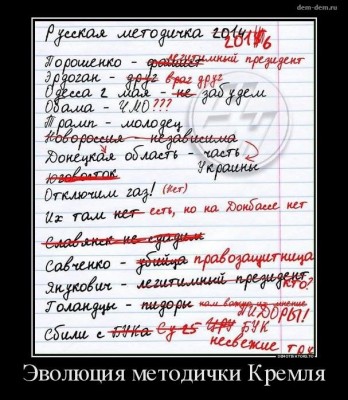 dem-dem.ru
Русская методичка 2014
2016
Порошенко - фашист легитимный президент
Эрдоган - друг враг друг
Одесса 2 мая - не забудем
Обама - ЧМО???
Трамп - молодец
Новороссия - независима
Донецкая область - часть Украины
Юговосток
Отключим газ! (Нет)
Их там нет есть, но на Донбассе нет
Славянск не сдадим
Савченко - убийца правозащитница
Янукович - легитимный президент КТО?
Голандцы - пидоры нам важно их мнение
ПИДОРЫ!
Сбили с БУКа Су 25 БУК
несвежие
Эволюция методички Кремля